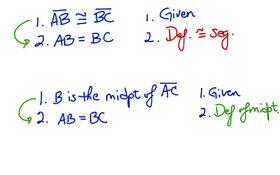 1. A̅B̅ ≅ B̅C̅ 1. Given
2. AB = BC 2. Def. ≅ seg.
1. B is the midpt of A̅C̅ 1. Given
2. AB = BC 2. Def of midpt.